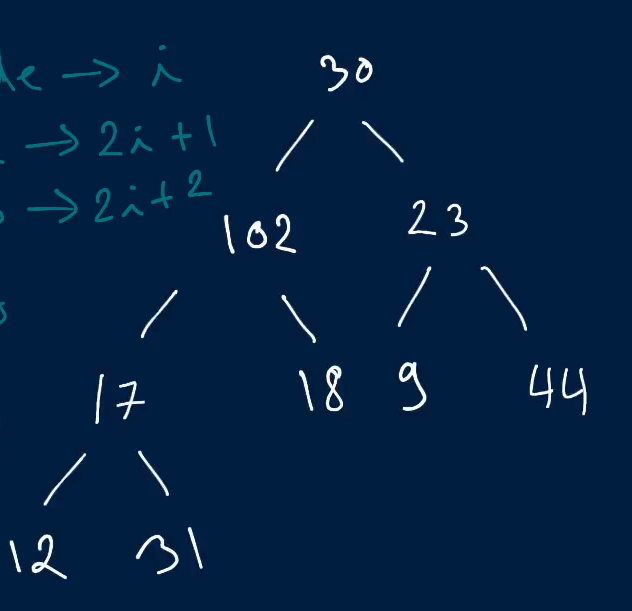 → i
→ 2i+1
→ 2i+2
30
102 23
17 18 9 44
12 31